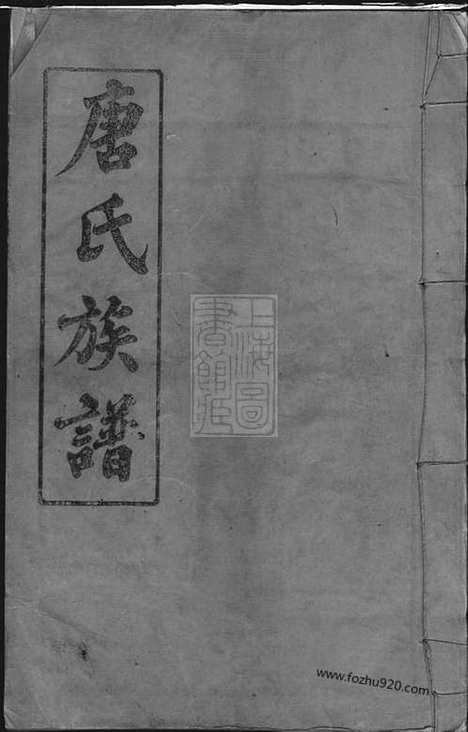 唐氏族譜
上海圖
書館藏
www.fozhu920.com